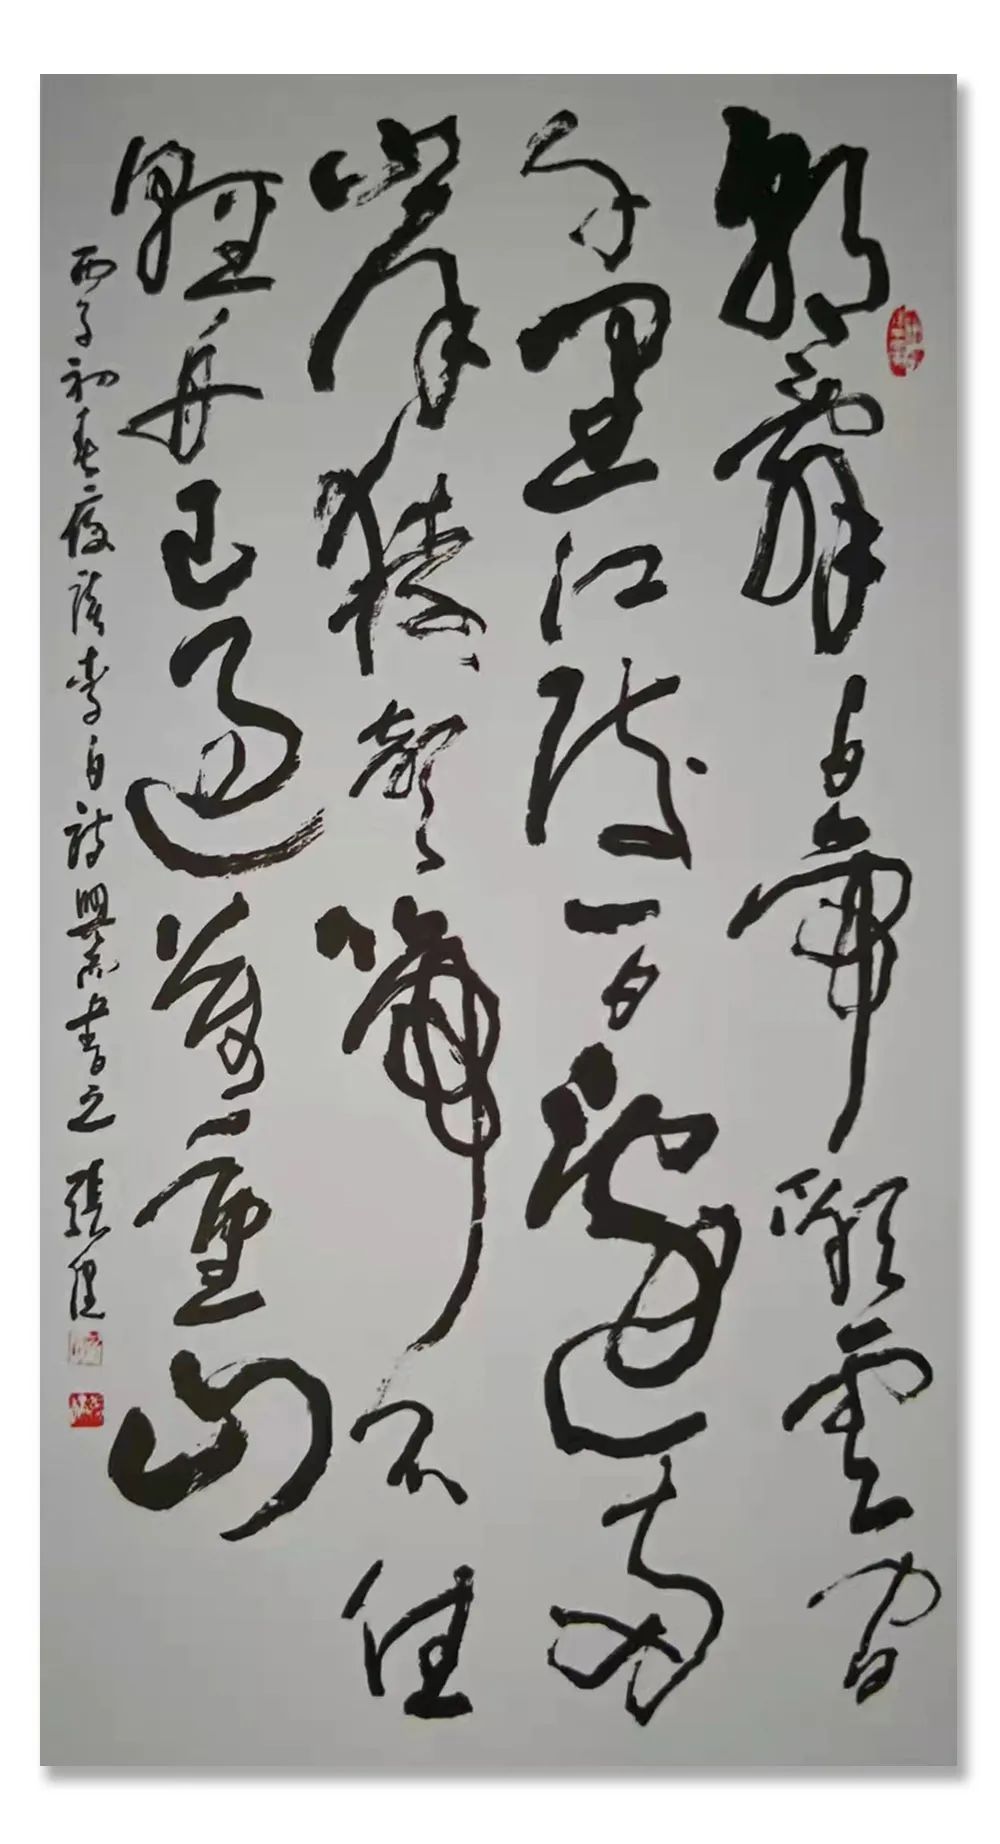 朝辭白帝彩雲間
千里江陵一日還兩
岸猿聲啼不住
輕舟已過萬重山
丙子初春夜讀李白詩興書之張